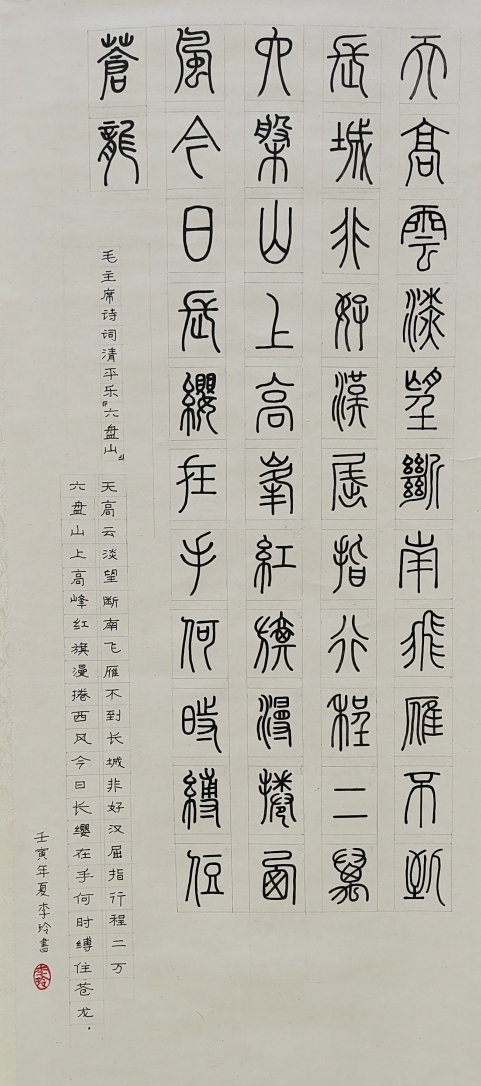 天高雲淡望斷南飛雁不到
長城非好漢屈指行程二萬
六盤山上高峯紅旗漫捲西
風今日長纓在手何時縛住
蒼龍
毛主席诗词清平乐『六盘山』
天高云淡望断南飞雁不到长城非好汉屈指行程二万
六盘山上高峰红旗漫捲西风今日长缨在手何时缚住苍龙.
壬寅年夏李玲書
李玲